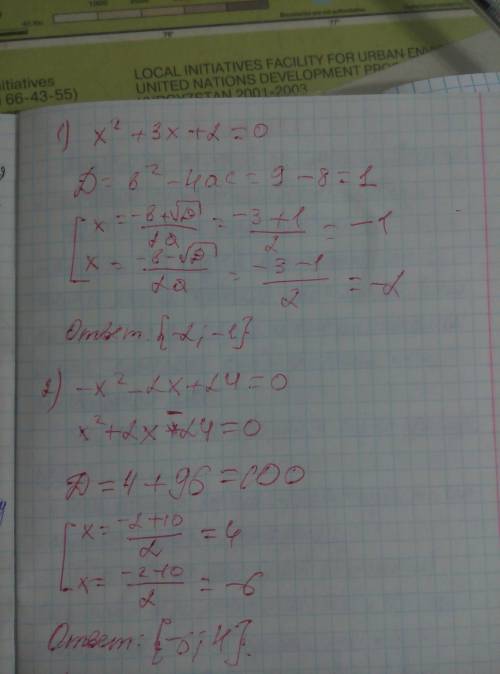 1000
76°
77°
nitiatives
LOCAL INITIATIVES FACILITY FOR URBAN ENV
66-43-55)
UNITED NATIONS DEVELOPMENT PRO
KYRGYZSTAN 2001-2003
1) x² + 3x + 2 = 0
D = b² - 4ac = 9 - 8 = 1
[ x = (-b + √D)/2a = (-3 + 1)/2 = -1
[ x = (-b - √D)/2a = (-3 - 1)/2 = -2
Ответ: {-2; -1}
2) -x² - 2x + 24 = 0
x² + 2x - 24 = 0
D = 4 + 96 = 100
[ x = (-2 + 10)/2 = 4
[ x = (-2 - 10)/2 = -6
Ответ: {-6; 4}.